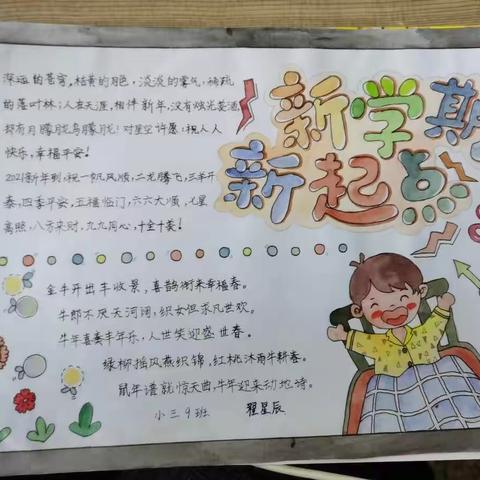 深海的苍穹，桔黄的月色，淡淡的雾气，稀疏
的落叶林；人在天涯，相伴新年，没有烛光美酒
却有月朦胧鸟朦胧！对星空许愿：祝人人
快乐，幸福平安！
2021新年到，祝一帆风顺，二龙腾飞，三羊开
泰，四季平安，五福临门，六六大顺，七星
高照，八方来财，九九同心，十全十美！
新学期
新起点
金牛开出丰收景，喜鹊衔来幸福春。
牛郎不厌天河阔，织女但求凡世欢。
牛年喜奏丰年乐，人世笑迎盛世春。
绿柳摇风燕织锦，红桃沐雨牛耕春。
鼠年谱就惊天曲，牛年迎来动地诗。
小三9班 翟星辰